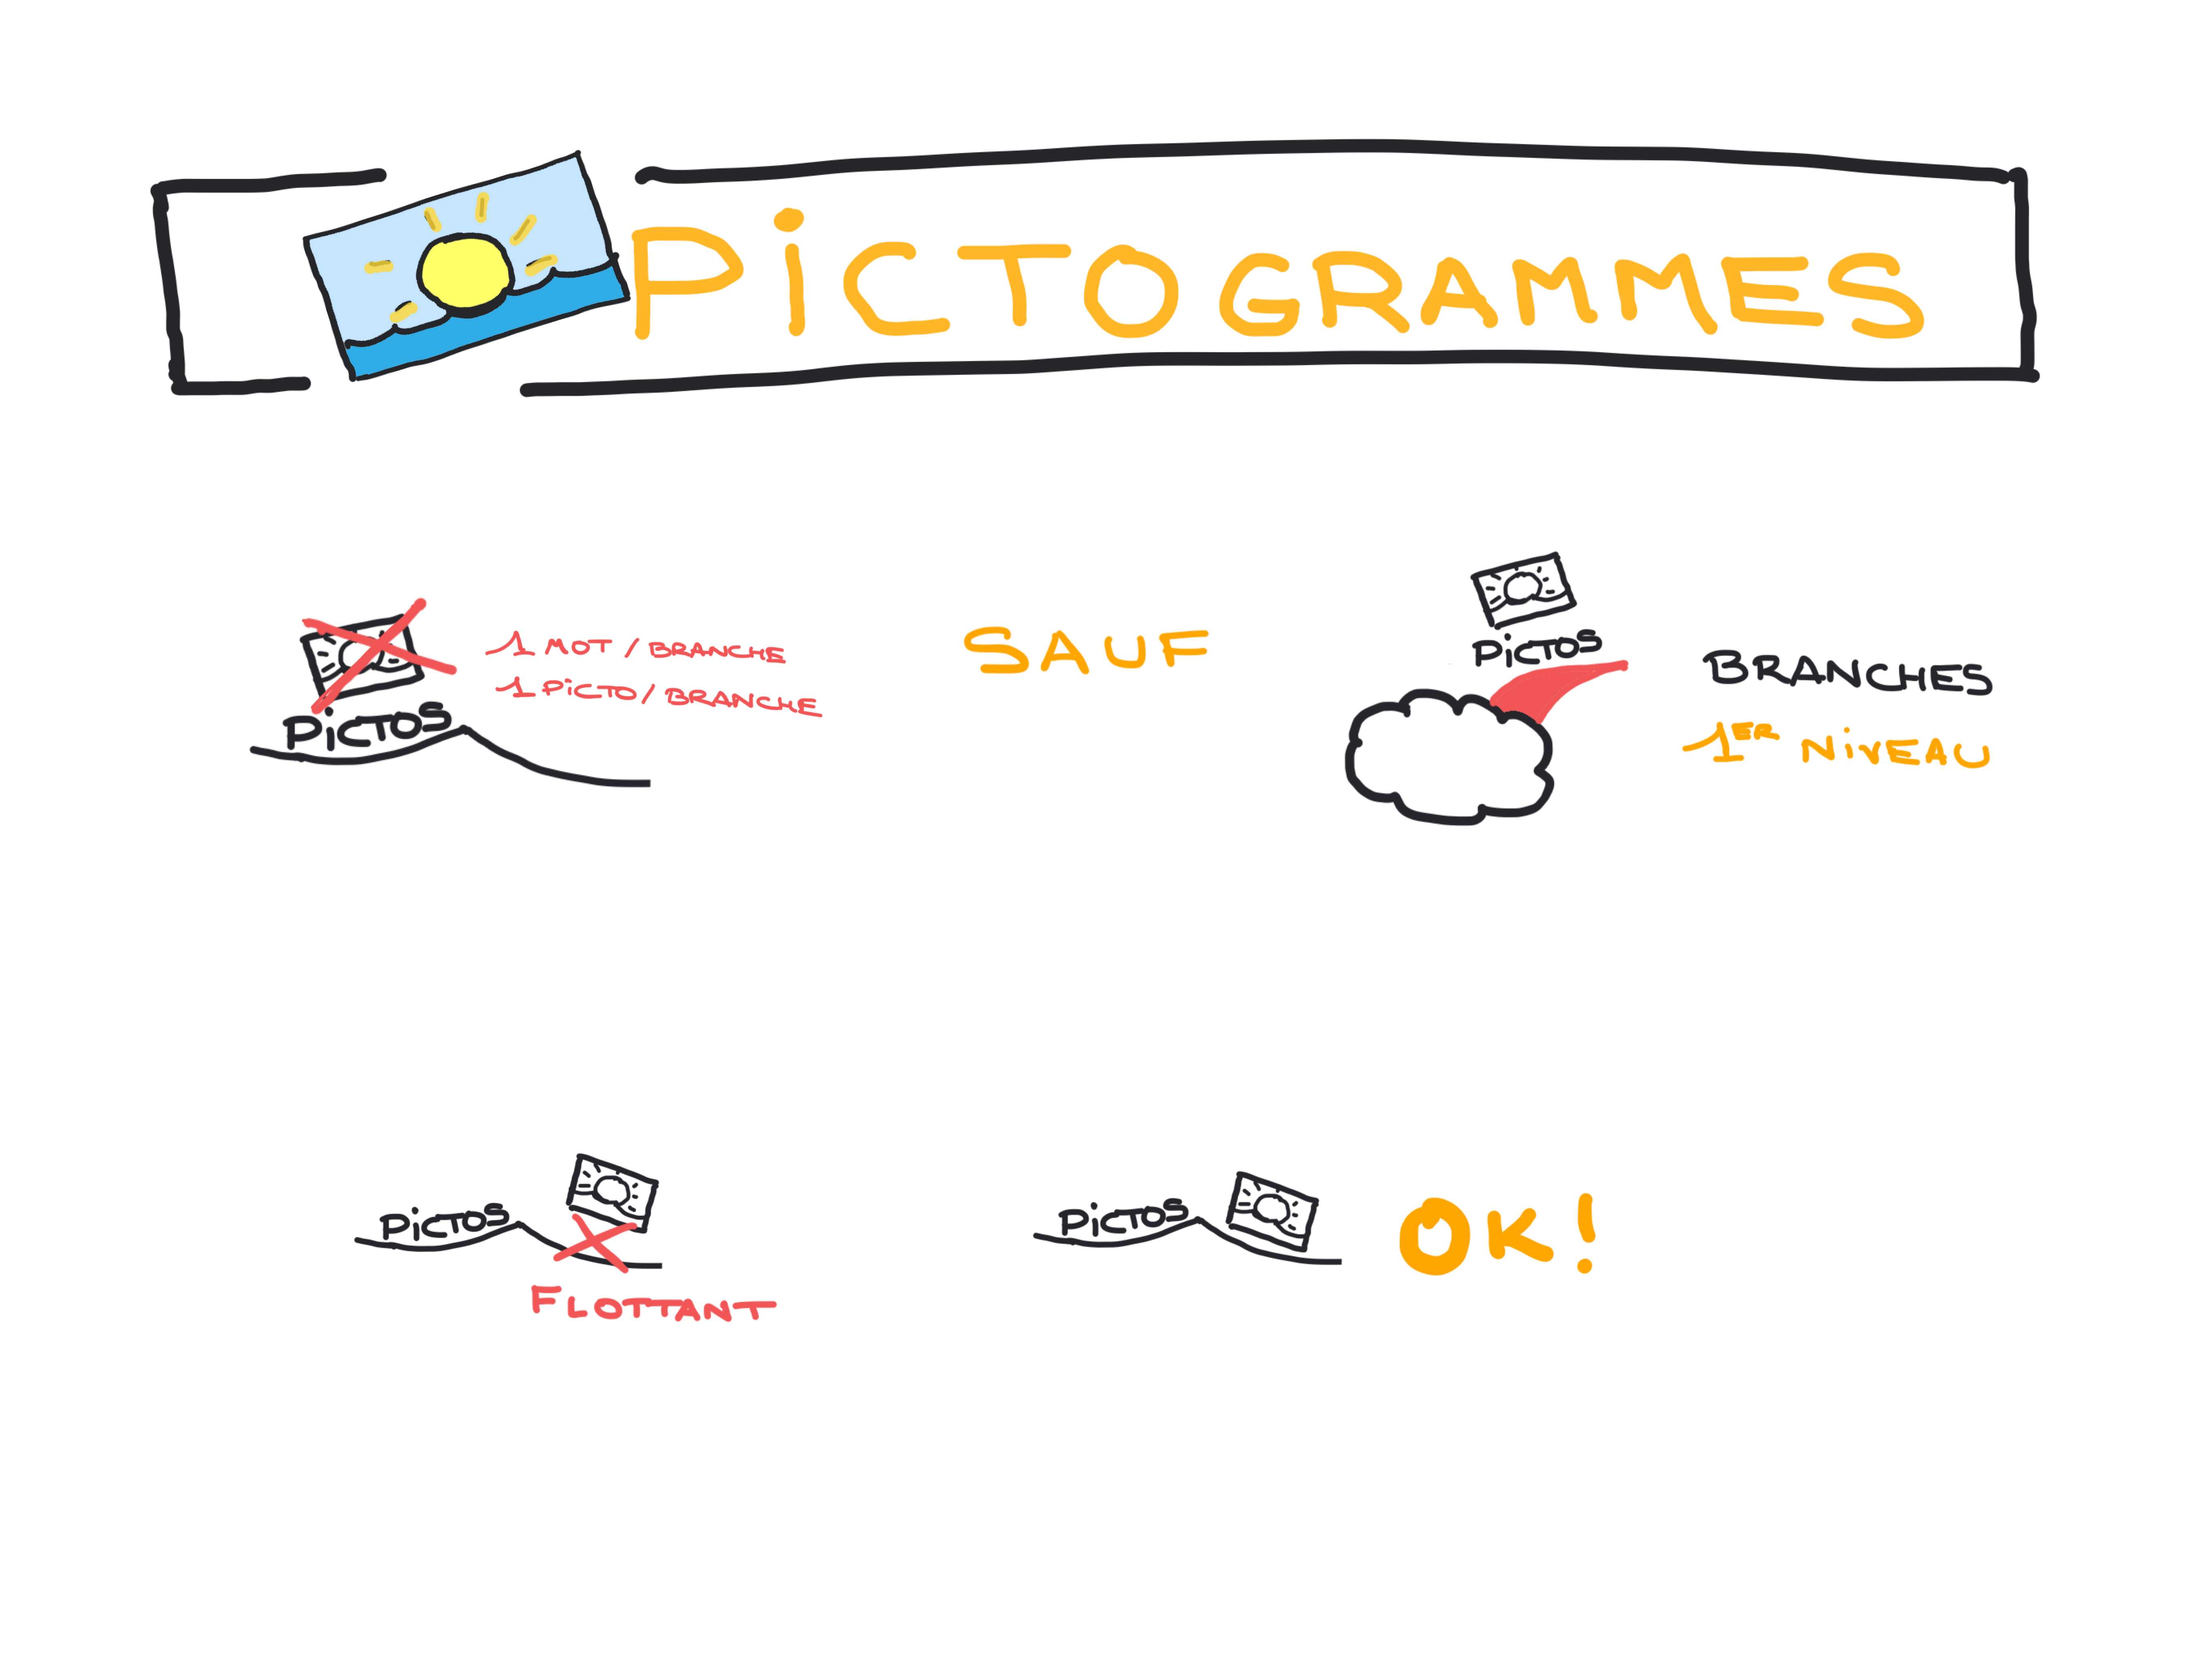 PiCTOGRAMMES
1 MOT / BRANCHE
1 PiCTO / BRANCHE
PiCTOS
SAUF
PiCTOS
BRANCHES
1ER NiVEAU
PiCTOS
FLOTTANT
PiCTOS
OK!